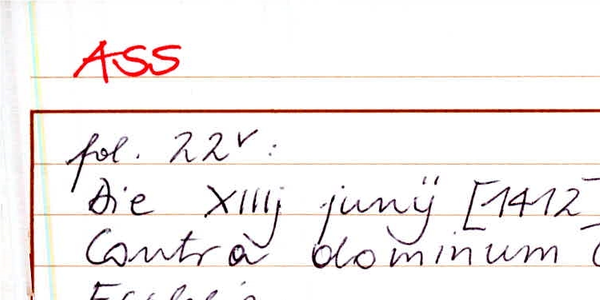 ASS
fol. 22v:
Die XIIIj junij [1412]
Contra dominum